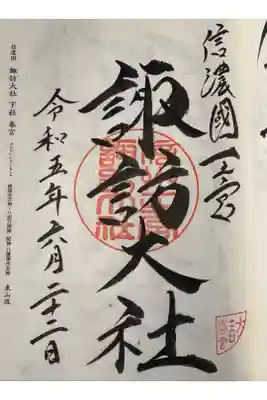 信濃國一之宮
諏訪大社
令和五年六月二十二日
信濃國 諏訪大社 下社 春宮
東山道